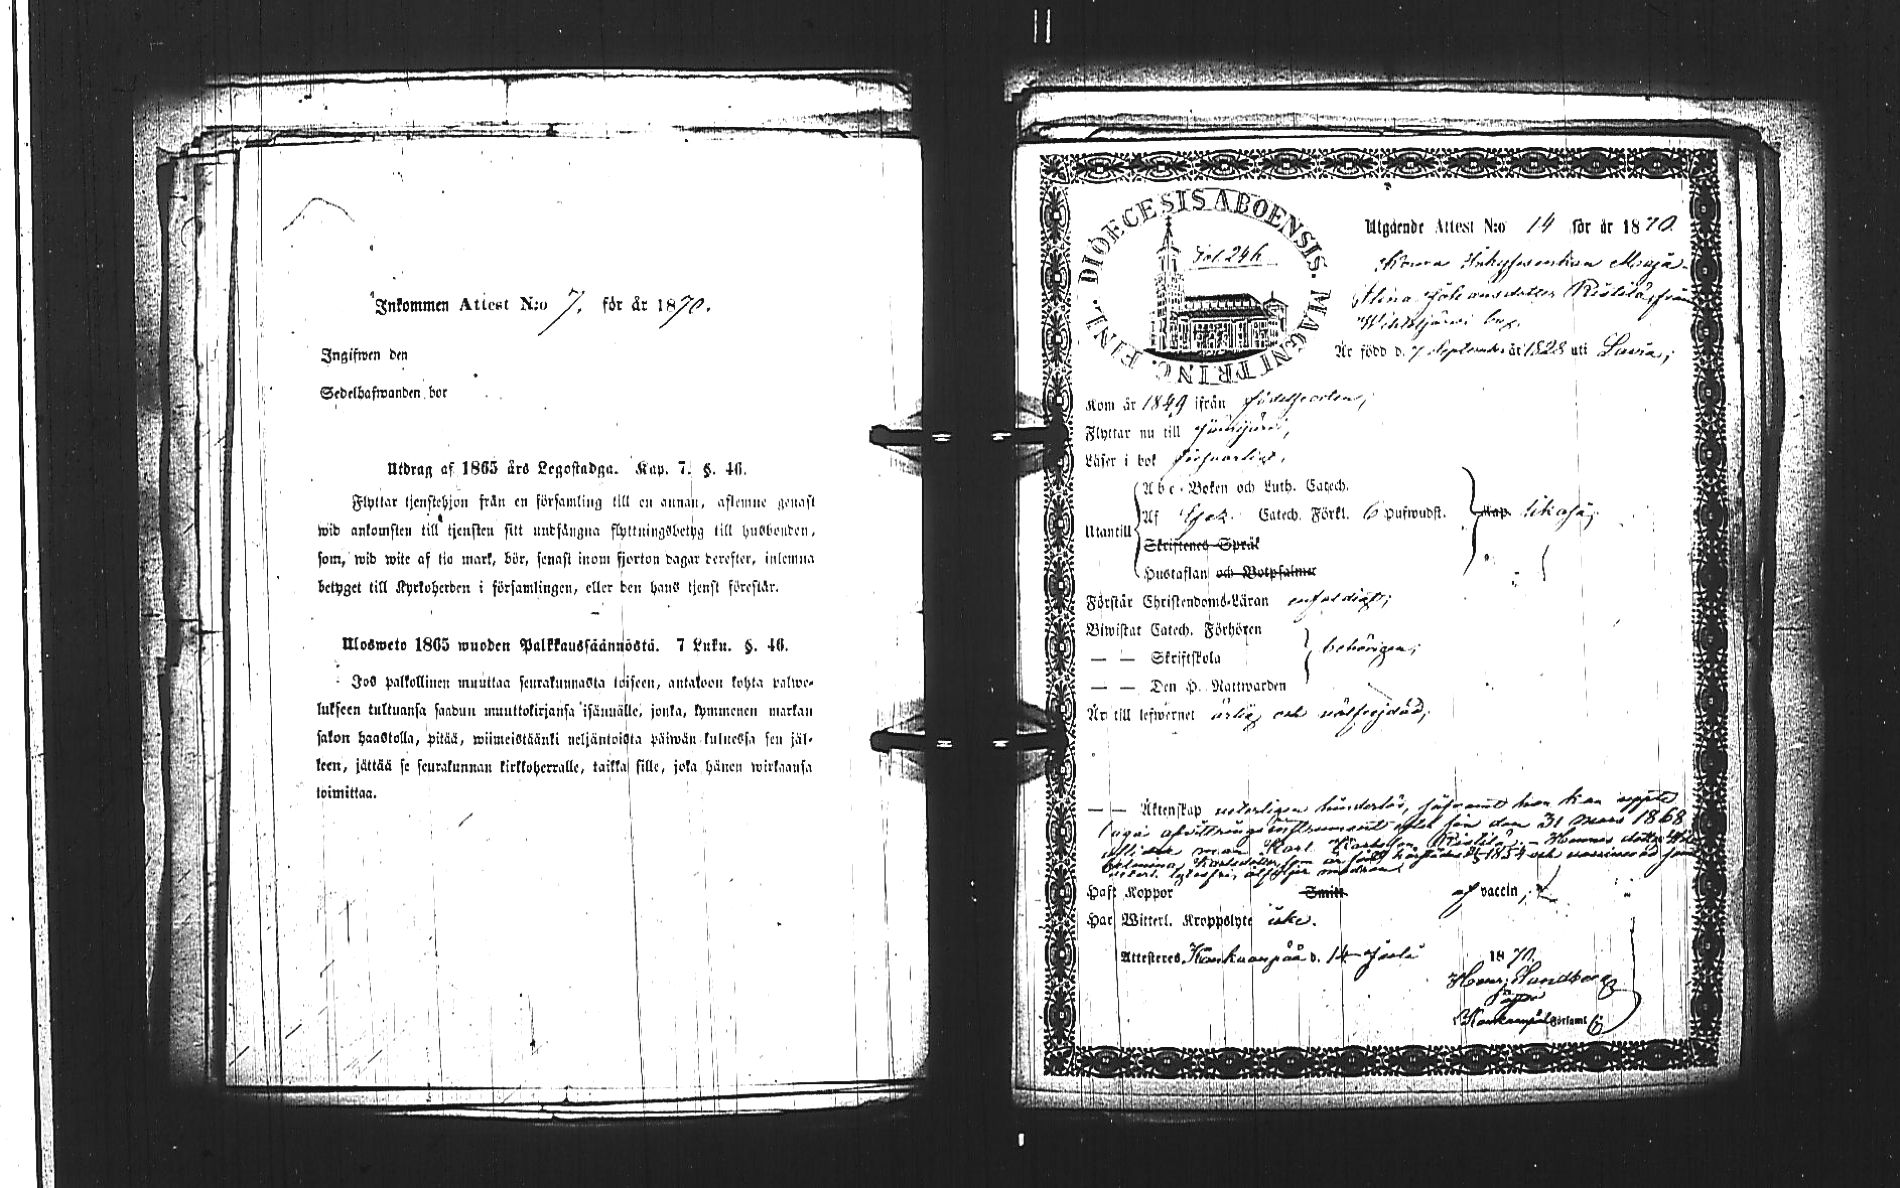 Inkommen Attest N:o 7. för år 1870.
Ingifwen den
Sedelhafwanden bor
Utdrag af 1865 års Legostadga. Kap. 7. §. 46.
Flyttar tjenstehjon från en församling till en annan, aflemne genast
wid ankomsten till tjensten sitt undfångna flyttningsbetyg till husbonden,
som, wid wite af tio mark, bör, senast inom fjorton dagar derefter, inlemna
betyget till Kyrkoherden i församlingen, eller den hans tjenst förestår.
Ulosweto 1865 wuoden Palkkaussäännöstä. 7 Luku. §. 46.
Jos palkollinen muuttaa seurakunnasta toiseen, antakoon kohta palwe-
lukseen tultuansa saadun muuttokirjansa isännälle, jonka, kymmenen markan
sakon haastolla, pitää, wiimeistäänki neljäntoista päiwän kuluessa sen jäl-
keen, jättää se seurakunnan kirkkoherralle, taikka sille, joka hänen wirkaansa
toimittaa.
DIOECESIS ABOENSIS. MAGNI PRINC. FINL.
Fol. 246
Utgående Attest N:o 14 för år 1870.
Johansdotter Ristilä, från
by.
Är född d. 7 September år 1828 uti Lavia;
Kom år 1849 ifrån födelseorten;
Flyttar nu till
Läser i bok försvarligt,
Abc-Boken och Luth. Catech.
Utantill Af Catech. Förkl. 6 Hufwudst. Kap.
Skriftenes Språk
Hustaflan och Botpsalmer
Förstår Christendoms-Läran enfaldigt;
Biwistat Catech. Förhören
— — Skriftskola behörigen;
— — Den H. Nattwarden
Är till lefwernet ärlig och välfrejdad;
— — Äktenskap veterligen hinderlös, hon kan uppte
31 Mars 1868
man Karl Ristilä. – Hennes dotter
Karlsdotter, som är född 1854 och
åtföljer modren.
Haft Koppor Smitt af vaccin;
Har Witterl. Kroppslyte icke.
Attesteres, Kankaanpää d. 14 Juli 1870.
Kankaanpää Församl.